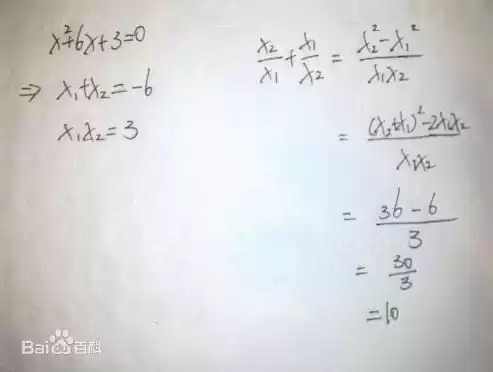 x²+6x+3=0
⇒ x₁+x₂=-6
x₁x₂=3
x₂/x₁ + x₁/x₂ = (x₂²-x₁²)/(x₁x₂)
= ((x₂+x₁)²-2x₁x₂)/(x₁x₂)
= (36-6)/3
= 30/3
=10
Bai百科